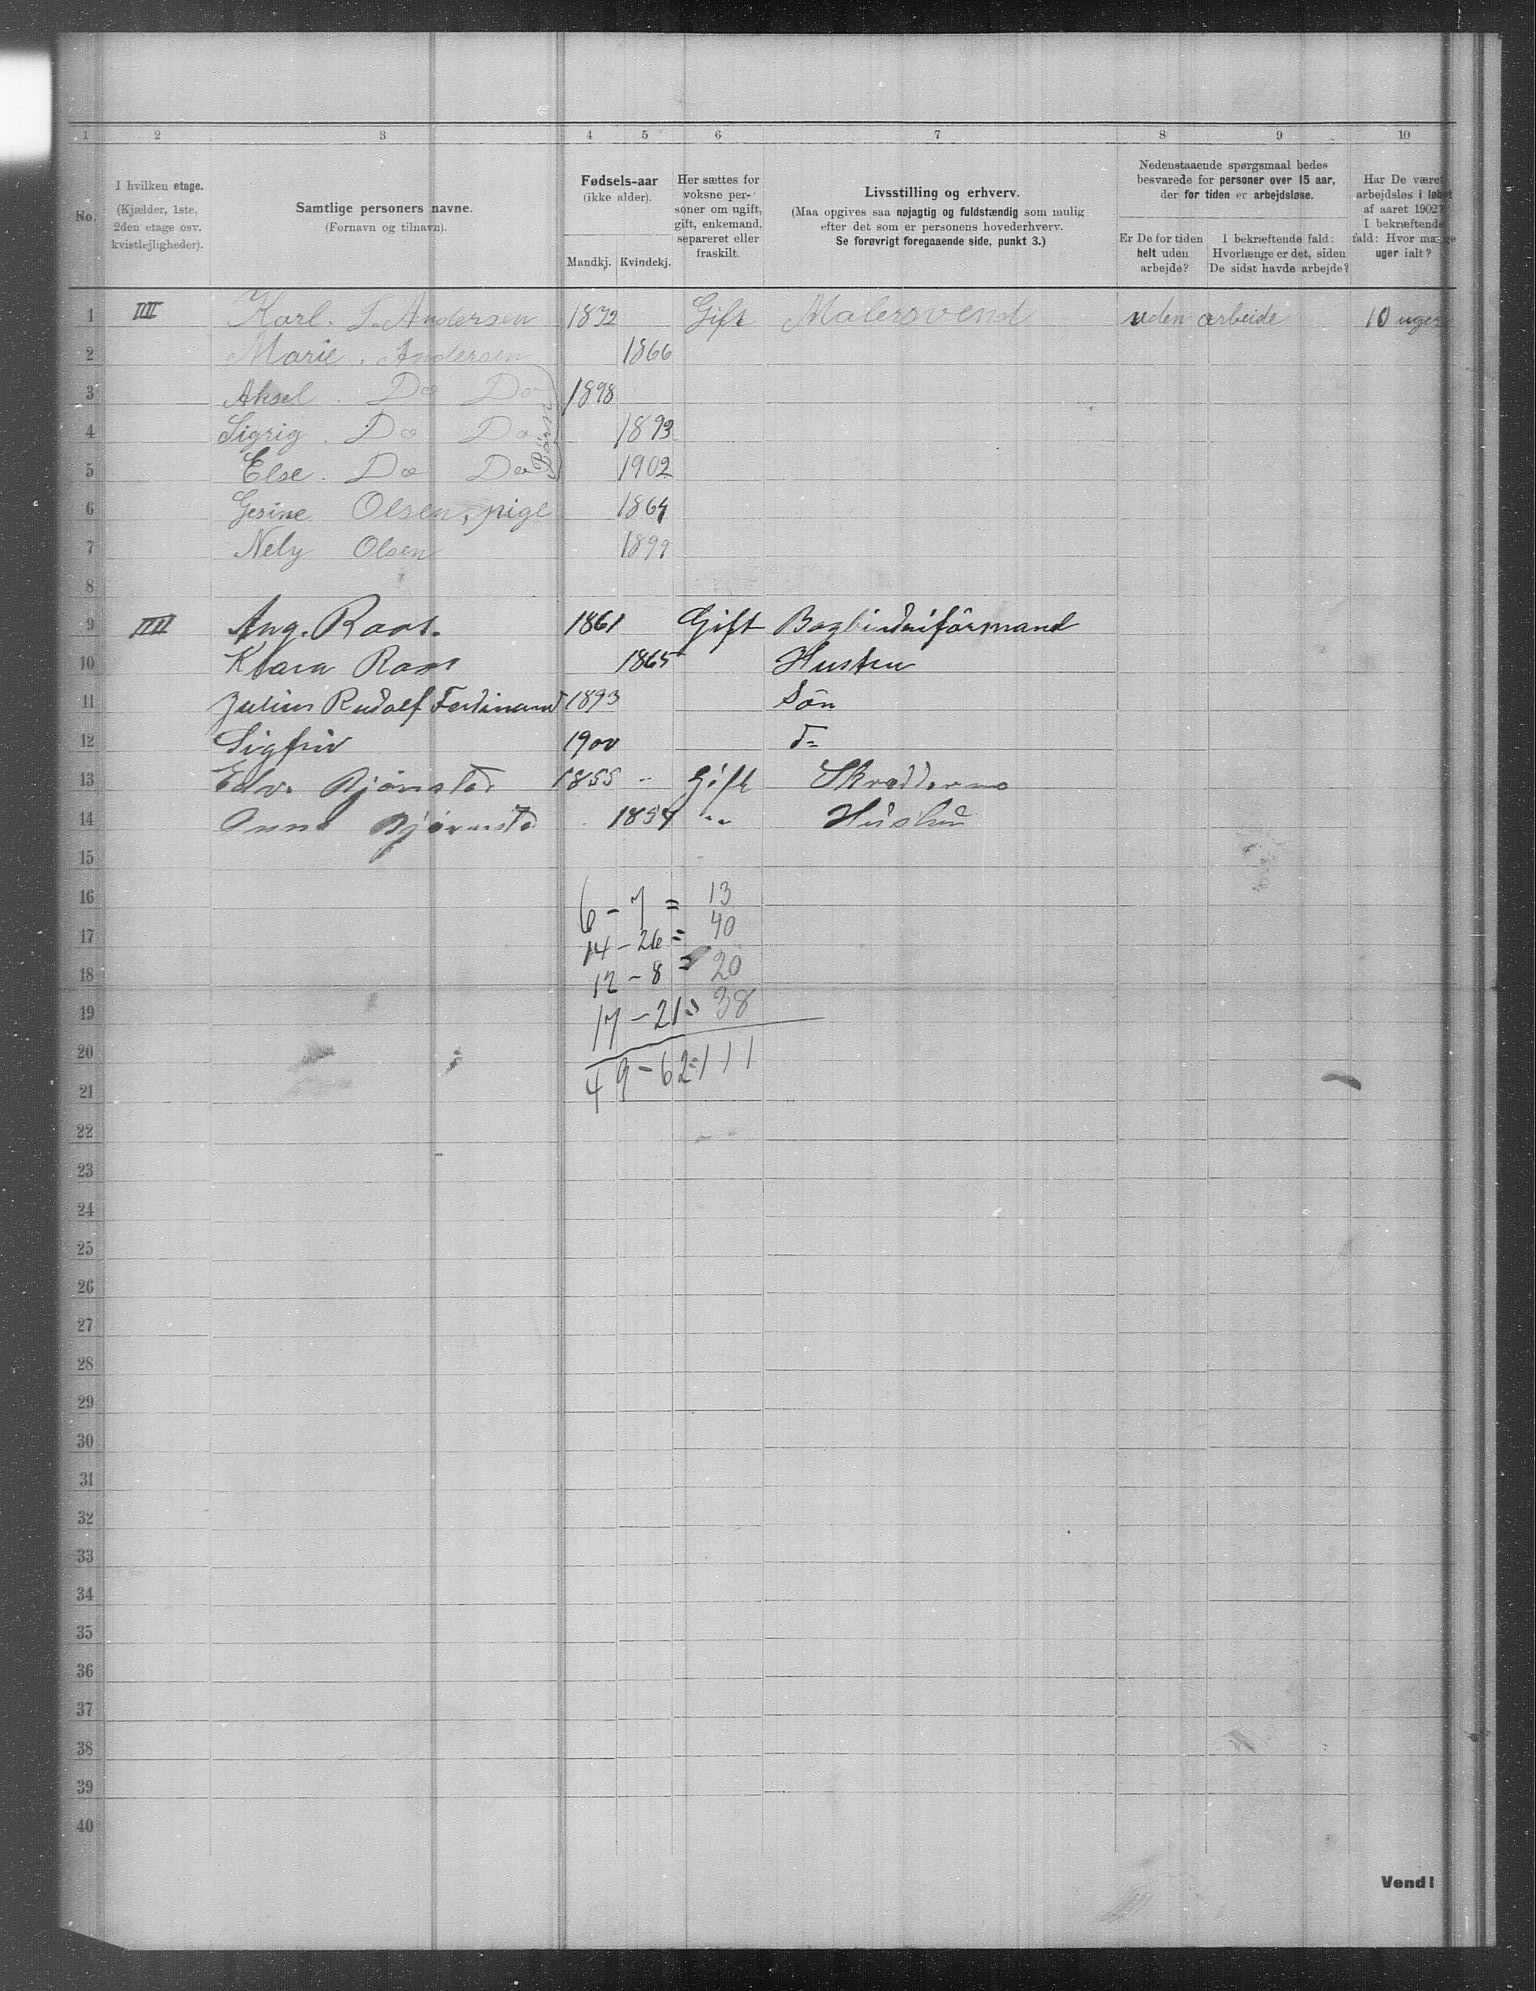 1 2 3 4 5 6 7 8 9 10
No.
I hvilken etage.
(Kjælder, 1ste,
2den etage osv.
kvistlejligheder).
Samtlige personers navne.
(Fornavn og tilnavn).
Fødsels-aar
(ikke alder).
Mandkj. Kvindekj.
Her sættes for
voksne per-
soner om ugift,
gift, enkemand,
separeret eller
fraskilt.
Livsstilling og erhverv.
(Maa opgives saa nøjagtig og fuldstændig som mulig
efter det som er personens hovederhverv.
Se forøvrigt foregaaende side, punkt 3.)
Nedenstaaende spørgsmaal bedes
besvarede for personer over 15 aar,
der for tiden er arbejdsløse.
Er De for tiden
helt uden
arbejde?
I bekræftende fald:
Hvorlænge er det, siden
De sidst havde arbejde?
Har De været
arbejdsløs i løbet
af aaret 1902?
I bekræftende
fald: Hvor mange
uger ialt?
1 III Karl. L. Andersen 1872 Gift Malersvend uden arbeide 10 uger
2 Marie. Andersen 1866
3 Aksel. Do Do 1898
4 Sigrig. Do Do 1893
5 Else. Do Do 1902
Børn
6 Gesine Olsen, pige 1864
7 Nely Olsen 1899
8
9 IIII Aug. Roos. 1861 Gift Bogbinderiformand
10 Klara Roos 1865 Hustru
11 Julius Rudolf Ferdinand 1893 Søn
12 Sigfrid 1900 d=
13 Edv. Bjørnstad 1855 - Gift Skrædder
14 Anna Bjørnstad 1854 " Hustru
15
16 6 - 7 = 13
17 14 - 26 = 40
18 12 - 8 = 20
19 17 - 21 = 38
20 49 - 62 = 111
21
22
23
24
25
26
27
28
29
30
31
32
33
34
35
36
37
38
39
40
Vend!